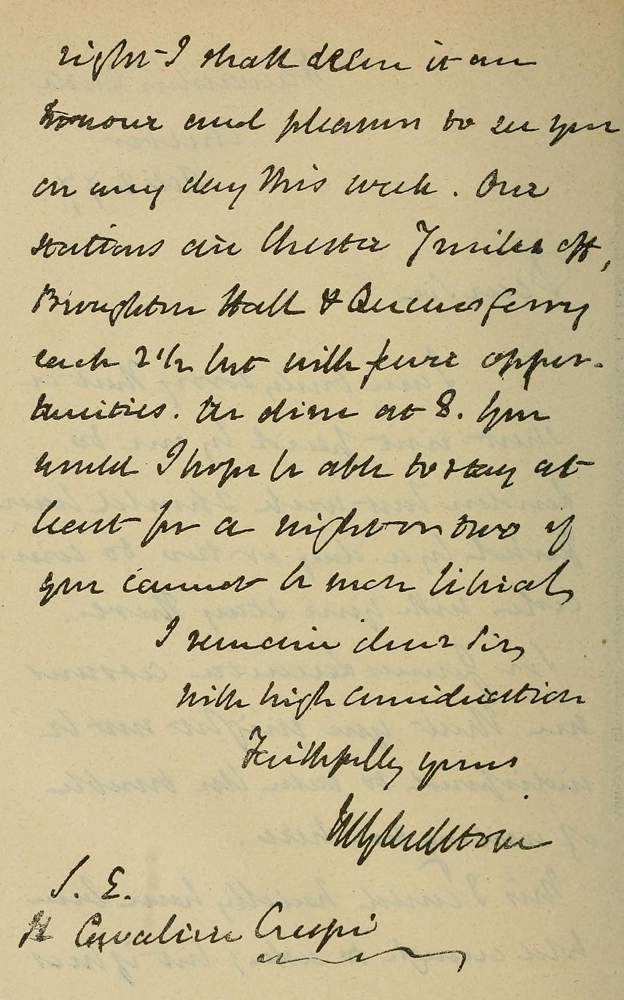 right I shall deem it an
honour and pleasure to see you
on any day this week. Our
stations are Chester 7 miles off,
Broughton Hall & Queensferry
each 2 1/2 but with fewer oppor-
tunities. We dine at 8. You
would I hope be able to stay at
least for a night or two if
you cannot be more liberal,
I remain dear Sir,
with high consideration
Faithfully yours
WEGladstone
S. E.
Il Cavaliere Crespi